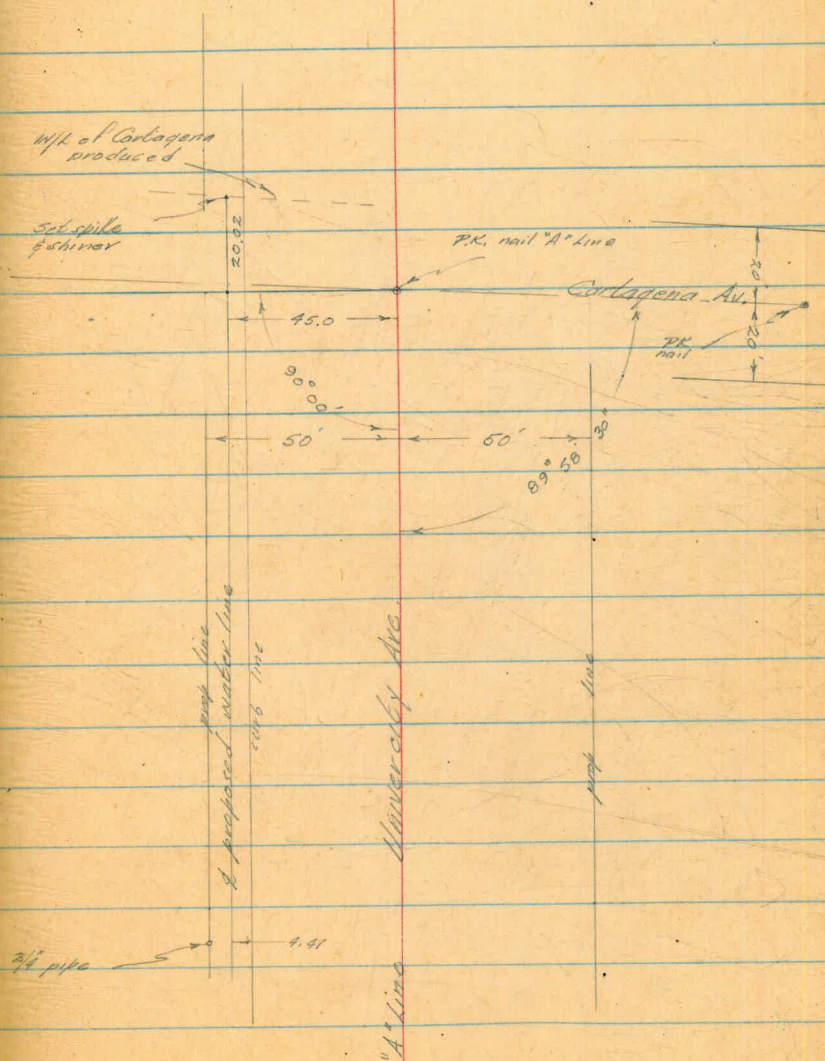 W/L of Cartagena
produced
Set spike
& shiner
20.02
P.K. nail "A" Line
Cartagena Av.
20'
20'
PK
nail
45.0
90° 00'
50'
50'
89° 58' 30"
prop line
℄ proposed water line
curb line
Univercity Ave.
prop line
3/4" pipe
4.41
"A" Line